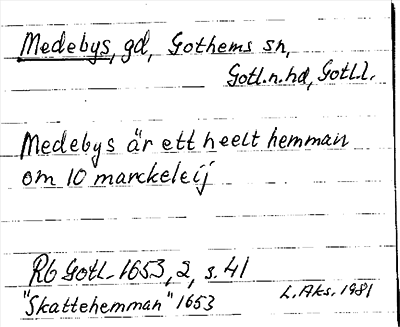 Medebys, gd, Gothems sn,
Gotl.n.hd, Gotl.l.
Medebys är ett heelt hemman
om 10 marckeleij
Rb Gotl. 1653, 2, s. 41
"Skattehemman" 1653
L. Aks. 1981